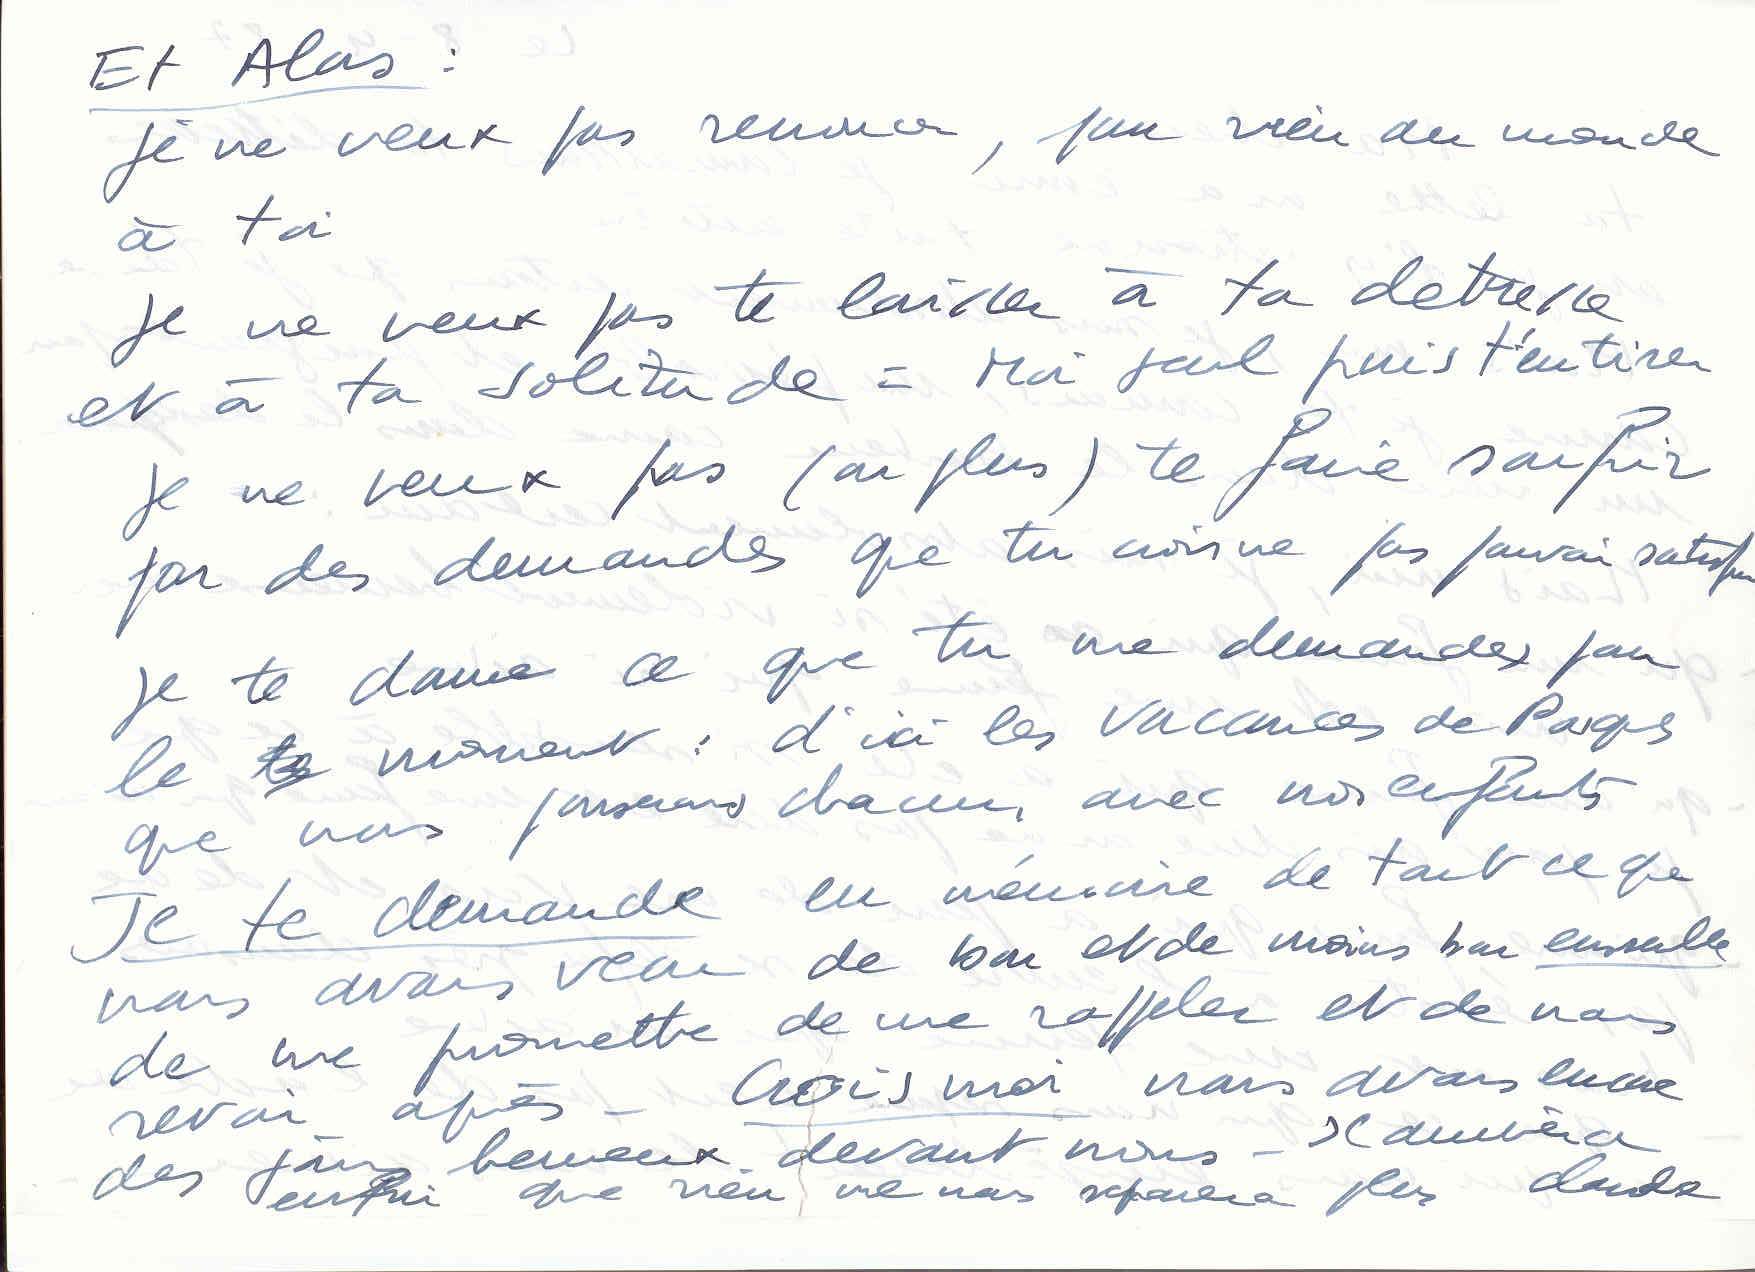 Et Alors :
je ne veux pas renoncer, pour rien au monde
à toi
Je ne veux pas te laisser à ta detresse
et à ta solitude = Moi seul puis t'en tirer
Je ne veux pas (ou plus) te faire souffrir
par des demandes que tu crois ne pas pouvoir satisfaire
Je te donne ce que tu me demandes pour
le moment : d'ici les vacances de Pasques
que nous passerons chacun, avec nos enfants
Je te demande en mémoire de tout ce que
nous avons vécu de bon et de moins bon ensemble
de me promettre de me rappeler et de nous
revoir après - Crois moi nous avons encore
des jours heureux devant nous -
enfin que rien ne nous separera plus